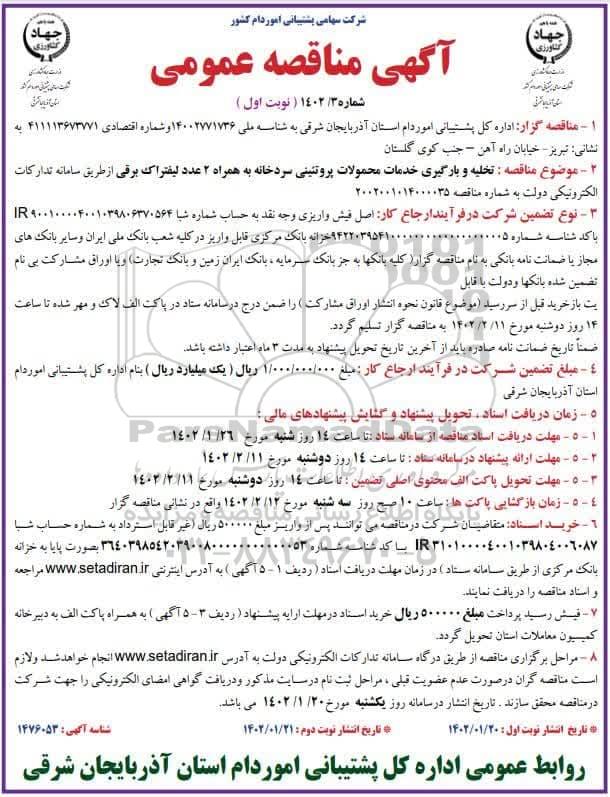 شرکت سهامی پشتیبانی اموردام کشور
همه با هم
جهاد
کشاورزی
آگهی مناقصه عمومی
همه با هم
جهاد
کشاورزی
شماره ۱۴۰۲/۳ ( نوبت اول )
۱ - مناقصه گزار: اداره کل پشتیبانی اموردام استان آذربایجان شرقی به شناسه ملی ۱۴۰۰۲۷۷۱۷۳۶ وشماره اقتصادی ۴۱۱۱۱۳۶۷۳۷۷۱ به
نشانی: تبریز- خیابان راه آهن – جنب کوی گلستان
۲ - موضوع مناقصه : تخلیه و بارگیری خدمات محمولات پروتئینی سردخانه به همراه ۲ عدد لیفتراک برقی ازطریق سامانه تدارکات
الکترونیکی دولت به شماره مناقصه ۲۰۰۲۰۰۱۰۱۴۰۰۰۰۳۵
۳ - نوع تضمین شرکت درفرآیندارجاع کار: اصل فیش واریزی وجه نقد به حساب شماره شبا IR ۹۰۰۱۰۰۰۰۴۰۰۱۰۳۹۸۰۶۳۷۰۵۶۴
باکد شناسه شماره خزانه بانک مرکزی قابل واریز درکلیه شعب بانک ملی ایران وسایر بانک های
مجاز یا ضمانت نامه بانکی به نام مناقصه گزار( کلیه بانکها به جز بانک سرمایه ، بانک ایران زمین و بانک تجارت) ویا اوراق مشارکت بی نام
تضمین شده بانکها ودولت با قابل
یت بازخرید قبل از سررسید (موضوع قانون نحوه انتشار اوراق مشارکت ) را ضمن درج درسامانه ستاد در پاکت الف لاک و مهر شده تا ساعت
۱۴ روز دوشنبه مورخ ۱۱/ ۲/ ۱۴۰۲ به مناقصه گزار تسلیم گردد.
ضمناً تاریخ ضمانت نامه صادره باید از آخرین تاریخ تحویل پیشنهاد به مدت ۳ ماه اعتبار داشته باشد.
۴ - مبلغ تضمین شرکت در فرآیند ارجاع کار : مبلغ ۱/۰۰۰/۰۰۰/۰۰۰ ریال ( یک میلیارد ریال ) بنام اداره کل پشتیبانی اموردام
استان آذربایجان شرقی
۵ - زمان دریافت اسناد ، تحویل پیشنهاد و گشایش پیشنهادهای مالی :
۱ - ۵ - مهلت دریافت اسناد مناقصه از سامانه ستاد :تا ساعت ۱۴ روز شنبه مورخ ۲۶/ ۱/ ۱۴۰۲
۲ - ۵ - مهلت ارائه پیشنهاد درسامانه ستاد : تا ساعت ۱۴ روز دوشنبه مورخ ۱۱/ ۲/ ۱۴۰۲
۳ - ۵ - مهلت تحویل پاکت الف محتوی اصلی تضمین : تا ساعت ۱۴ روز دوشنبه مورخ ۱۱/ ۲/ ۱۴۰۲
۴ - ۵ - زمان بازگشایی پاکت ها: ساعت ۱۰ صبح روز سه شنبه مورخ ۱۲/ ۲/ ۱۴۰۲ واقع در نشانی مناقصه گزار
۶ - خرید اسناد: متقاضیان شرکت درمناقصه می توانند پس از واریز مبلغ ۵۰۰۰۰۰ ریال (غیر قابل استرداد به شماره حساب شبا
IR ۳۱۰۱۰۰۰۰۴۰۰۱۰۳۹۸۰۴۰۰۶۰۸۷ با کد شناسه شماره بصورت پایا به خزانه
بانک مرکزی از طریق سامانه ستاد ) در زمان مهلت دریافت اسناد ( ردیف ۱ - ۵ آگهی ) به آدرس اینترنتی www.setadiran.ir مراجعه
و اسناد مناقصه را دریافت نمایند.
۷ - فیش رسید پرداخت مبلغ ۵۰۰۰۰۰ ریال خرید اسناد درمهلت ارایه پیشنهاد ( ردیف ۳ - ۵ آگهی ) به همراه پاکت الف به دبیرخانه
کمیسیون معاملات استان تحویل گردد.
۸ - مراحل برگزاری مناقصه از طریق درگاه سامانه تدارکات الکترونیکی دولت به آدرس www.setadiran.ir انجام خواهدشد ولازم
است مناقصه گران درصورت عدم عضویت قبلی ، مراحل ثبت نام درسایت مذکور ودریافت گواهی امضای الکترونیکی را جهت شرکت
درمناقصه محقق سازند . تاریخ انتشار درسامانه روز یکشنبه مورخ ۲۰/ ۱/ ۱۴۰۲ می باشد.
* تاریخ انتشار نوبت اول : ۱۴۰۲/۰۱/۲۰ * تاریخ انتشار نوبت دوم : ۱۴۰۲/۰۱/۲۱ شناسه آگهی : ۱۴۷۶۰۵۳
روابط عمومی اداره کل پشتیبانی اموردام استان آذربایجان شرقی
ParsNamadData
پایگاه اطلاع رسانی مناقصه و مزایده
۰۲۱-۸۸۳۴۹۶۷۰-۵